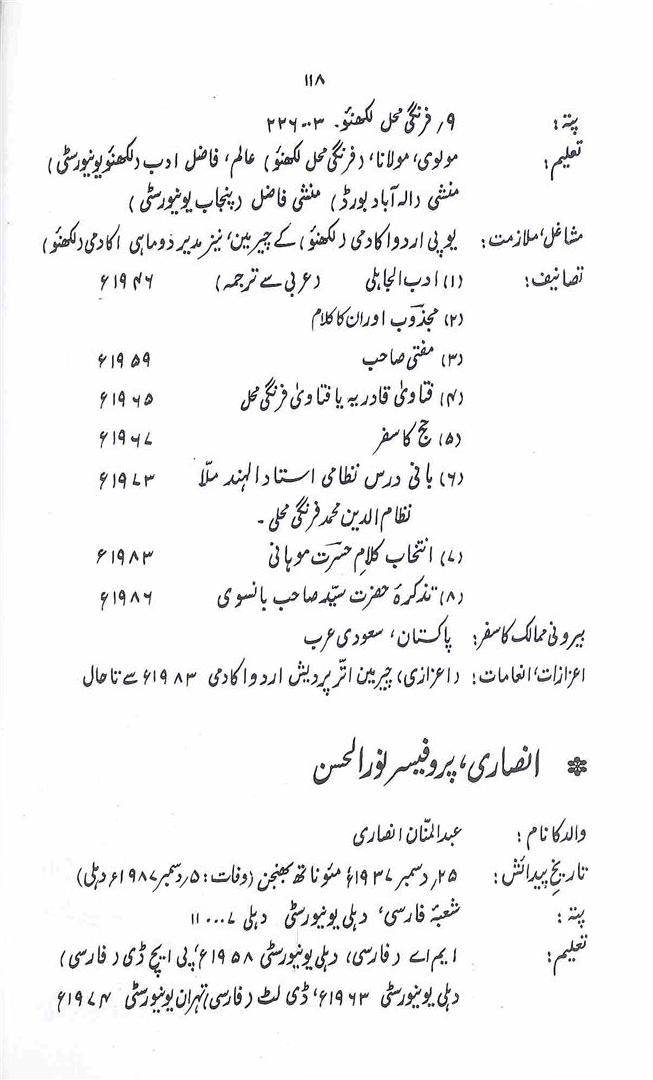 ۱۱۸
پتہ: ۹/ فرنگی محل لکھنؤ۔ ۲۲۶۰۰۳
تعلیم: مولوی، مولانا، (فرنگی محل لکھنؤ) عالم، فاضل ادب (لکھنؤ یونیورسٹی)
منشی (الہ آباد بورڈ) منشی فاضل (پنجاب یونیورسٹی)
مشاغل، ملازمت: یوپی اردو اکادمی (لکھنؤ) کے چیرمین، نیز مدیر دوماہی اکادمی (لکھنؤ)
تصانیف: (۱) ادب الجاہلی (عربی سے ترجمہ) ۱۹۴۶ء
(۲) مجذوب اور ان کا کلام
(۳) مفتی صاحب ۱۹۵۹ء
(۴) فتاویٰ قادریہ یا فتاویٰ فرنگی محل ۱۹۶۵ء
(۵) حج کا سفر ۱۹۶۷ء
(۶) بانی درس نظامی استاد الہند ملّا ۱۹۷۳ء
نظام الدین محمد فرنگی محلی۔
(۷) انتخاب کلامِ حسرت موہانی ۱۹۸۳ء
(۸) تذکرۂ حضرت سیّد صاحب بانسوی ۱۹۸۶ء
بیرونی ممالک کا سفر: پاکستان، سعودی عرب
اعزازات، انعامات: (اعزازی) چیرمین اتّر پردیش اردو اکادمی ۱۹۸۳ء سے تا حال
انصاری، پروفیسر نور الحسن
والد کا نام: عبد المنّان انصاری
تاریخ پیدائش: ۲۵/ دسمبر ۱۹۳۷ء مئو ناتھ بھنجن (وفات: ۵/ دسمبر ۱۹۸۷ء دہلی)
پتہ: شعبۂ فارسی، دہلی یونیورسٹی دہلی ۱۱۰۰۰۷
تعلیم: ایم اے (فارسی) دہلی یونیورسٹی ۱۹۵۸ء، پی ایچ ڈی (فارسی)
دہلی یونیورسٹی ۱۹۶۳ء، ڈی لٹ (فارسی) تہران یونیورسٹی ۱۹۷۴ء